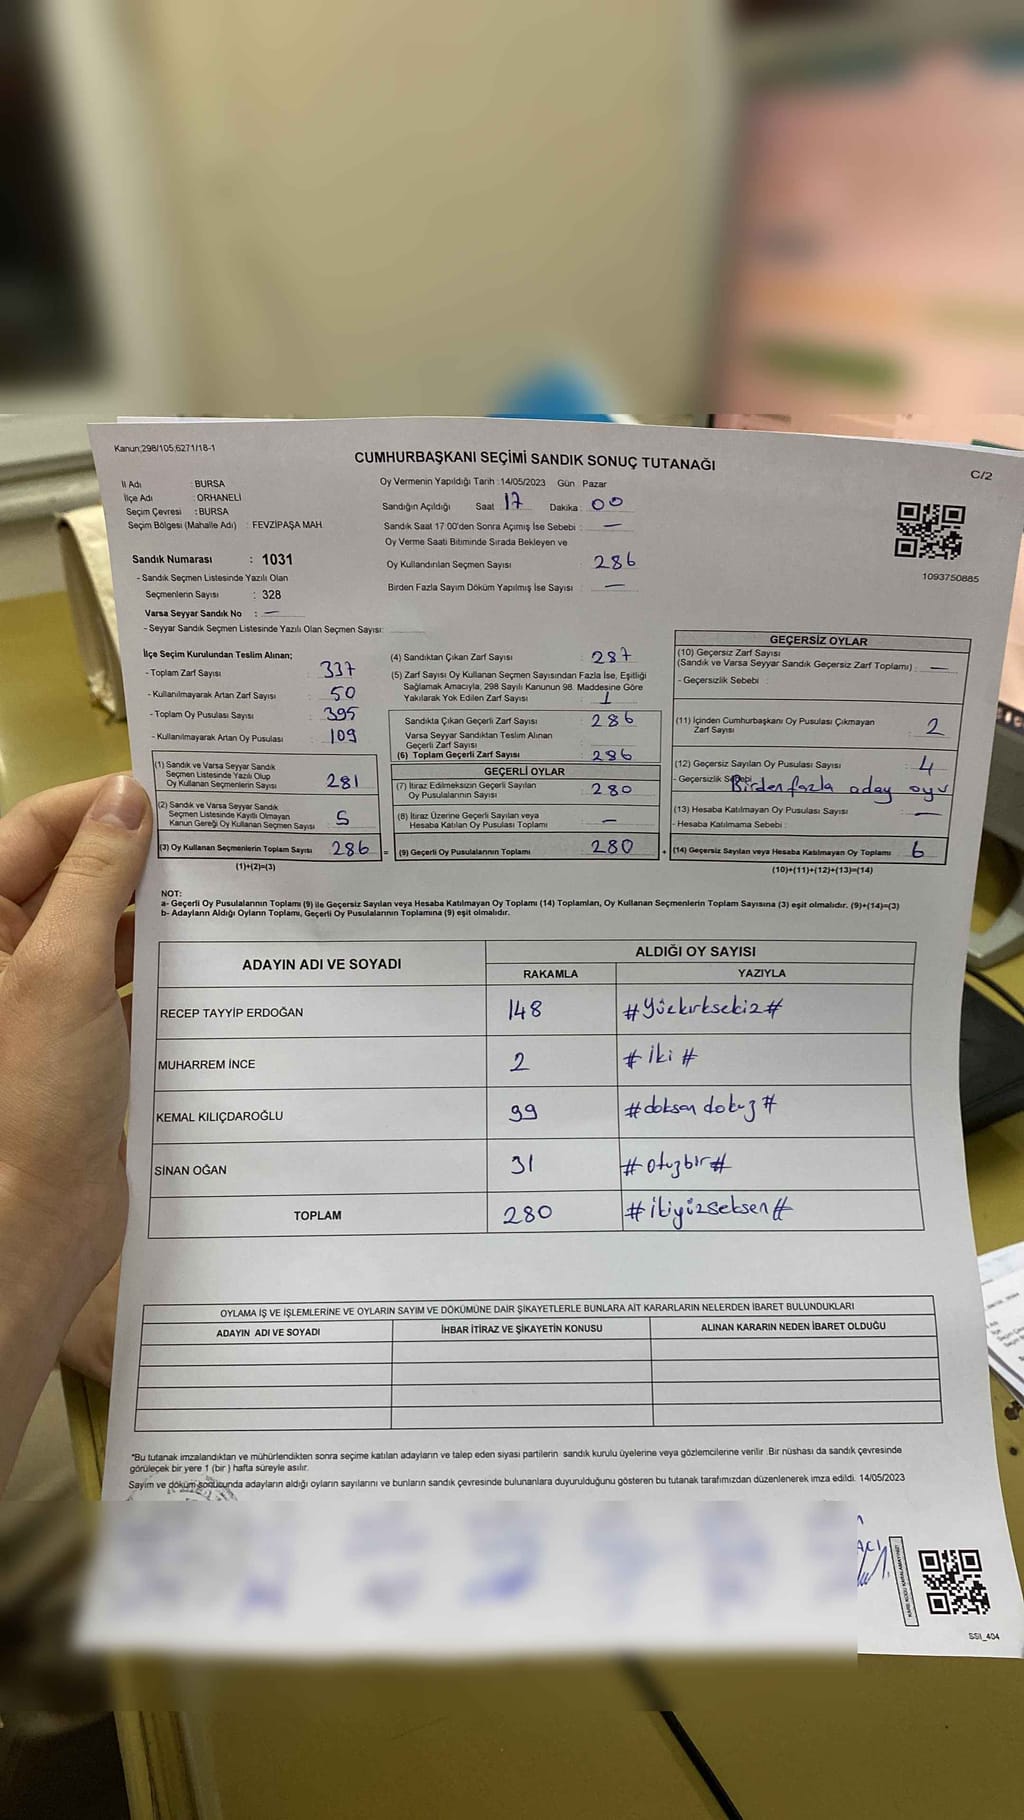 Kanun;298/105;6271/18-1
CUMHURBAŞKANI SEÇİMİ SANDIK SONUÇ TUTANAĞI
C/2
İl Adı : BURSA
İlçe Adı : ORHANELİ
Seçim Çevresi : BURSA
Seçim Bölgesi (Mahalle Adı) : FEVZİPAŞA MAH.
Sandık Numarası : 1031
- Sandık Seçmen Listesinde Yazılı Olan
Seçmenlerin Sayısı : 328
Varsa Seyyar Sandık No : —
- Seyyar Sandık Seçmen Listesinde Yazılı Olan Seçmen Sayısı:
Oy Vermenin Yapıldığı Tarih : 14/05/2023 Gün : Pazar
Sandığın Açıldığı Saat 17 Dakika : 00
Sandık Saat 17:00'den Sonra Açımış İse Sebebi : —
Oy Verme Saati Bitiminde Sırada Bekleyen ve
Oy Kullandırılan Seçmen Sayısı : 286
Birden Fazla Sayım Döküm Yapılmış İse Sayısı : —
1093750885
İlçe Seçim Kurulundan Teslim Alınan;
- Toplam Zarf Sayısı : 337
- Kullanılmayarak Artan Zarf Sayısı : 50
- Toplam Oy Pusulası Sayısı : 395
- Kullanılmayarak Artan Oy Pusulası : 109
(1) Sandık ve Varsa Seyyar Sandık
Seçmen Listesinde Yazılı Olup
Oy Kullanan Seçmenlerin Sayısı : 281
(2) Sandık ve Varsa Seyyar Sandık
Seçmen Listesinde Kayıtlı Olmayan
Kanun Gereği Oy Kullanan Seçmen Sayısı : 5
(3) Oy Kullanan Seçmenlerin Toplam Sayısı : 286 =
(1)+(2)=(3)
(4) Sandıktan Çıkan Zarf Sayısı : 287
(5) Zarf Sayısı Oy Kullanan Seçmen Sayısından Fazla İse, Eşitliği
Sağlamak Amacıyla, 298 Sayılı Kanunun 98. Maddesine Göre
Yakılarak Yok Edilen Zarf Sayısı : 1
Sandıkta Çıkan Geçerli Zarf Sayısı : 286
Varsa Seyyar Sandıktan Teslim Alınan
Geçerli Zarf Sayısı :
(6) Toplam Geçerli Zarf Sayısı : 286
GEÇERLİ OYLAR
(7) İtiraz Edilmeksizin Geçerli Sayılan
Oy Pusulalarının Sayısı : 280
(8) İtiraz Üzerine Geçerli Sayılan veya
Hesaba Katılan Oy Pusulası Toplamı : —
(9) Geçerli Oy Pusulalarının Toplamı : 280 +
GEÇERSİZ OYLAR
(10) Geçersiz Zarf Sayısı
(Sandık ve Varsa Seyyar Sandık Geçersiz Zarf Toplamı) : —
- Geçersizlik Sebebi :
(11) İçinden Cumhurbaşkanı Oy Pusulası Çıkmayan
Zarf Sayısı : 2
(12) Geçersiz Sayılan Oy Pusulası Sayısı : 4
- Geçersizlik Sebebi : Birden fazla aday oyu
(13) Hesaba Katılmayan Oy Pusulası Sayısı : —
- Hesaba Katılmama Sebebi :
(14) Geçersiz Sayılan veya Hesaba Katılmayan Oy Toplamı : 6
(10)+(11)+(12)+(13)=(14)
NOT:
a- Geçerli Oy Pusulalarının Toplamı (9) ile Geçersiz Sayılan veya Hesaba Katılmayan Oy Toplamı (14) Toplamları, Oy Kullanan Seçmenlerin Toplam Sayısına (3) eşit olmalıdır. (9)+(14)=(3)
b- Adayların Aldığı Oyların Toplamı, Geçerli Oy Pusulalarının Toplamına (9) eşit olmalıdır.
ADAYIN ADI VE SOYADI ALDIĞI OY SAYISI
RAKAMLA YAZIYLA
RECEP TAYYİP ERDOĞAN 148 #Yüzkırksekiz#
MUHARREM İNCE 2 #iki#
KEMAL KILIÇDAROĞLU 99 #doksan dokuz#
SİNAN OĞAN 31 #otuzbir#
TOPLAM 280 #ikiyüzseksen#
OYLAMA İŞ VE İŞLEMLERİNE VE OYLARIN SAYIM VE DÖKÜMÜNE DAİR ŞİKAYETLERLE BUNLARA AİT KARARLARIN NELERDEN İBARET BULUNDUKLARI
ADAYIN ADI VE SOYADI İHBAR İTİRAZ VE ŞİKAYETİN KONUSU ALINAN KARARIN NEDEN İBARET OLDUĞU
*Bu tutanak imzalandıktan ve mühürlendikten sonra seçime katılan adayların ve talep eden siyasi partilerin sandık kurulu üyelerine veya gözlemcilerine verilir .Bir nüshası da sandık çevresinde
görülecek bir yere 1 (bir ) hafta süreyle asılır.
Sayım ve döküm sonucunda adayların aldığı oyların sayılarını ve bunların sandık çevresinde bulunanlara duyurulduğunu gösteren bu tutanak tarafımızdan düzenlenerek imza edildi. 14/05/2023
SSI_404